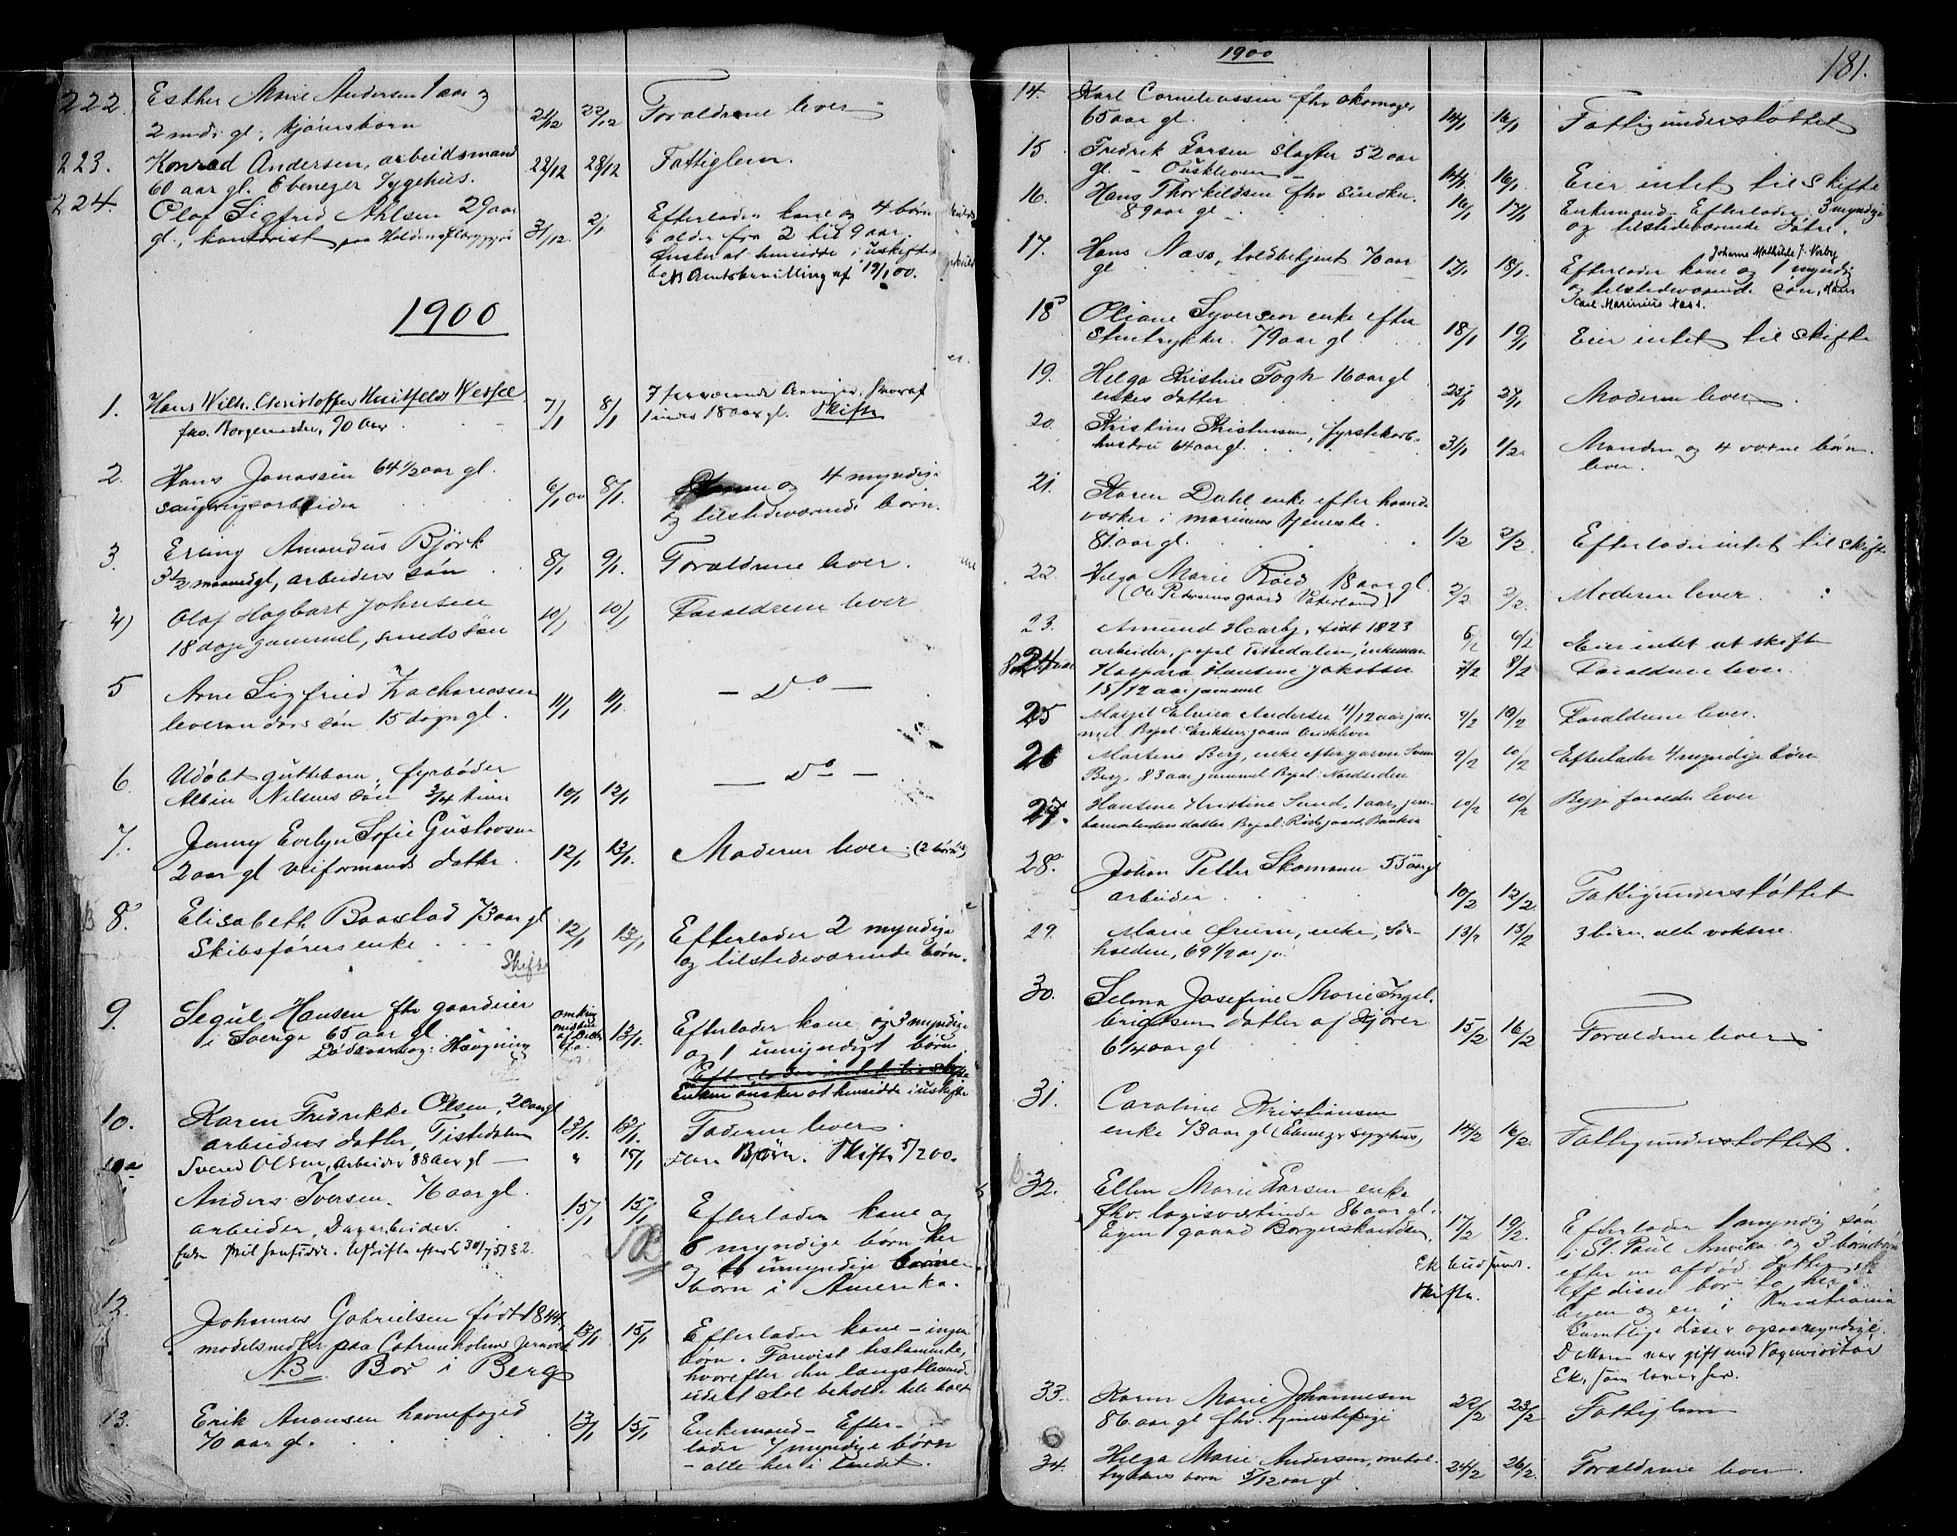 222. Esther Marie Andersen 1 aar og
2 mdr. gl., kjørersbarn 21/12 22/12 Forældrene lever
223. Konrad Andersen, arbeidsmand
60 aar gl. Ebenezer Sygehus. 22/12 28/12 Fattiglem.
224. Olaf Sigfred Ahlsen 29 aar
gl., kontorist paa 31/12 2/1
Efterlader kone og 4 børn
i alder fra 2 til 9 aar.
Ønsker at hensidde i uskiftet
bo NB Amtsbevilling af 19/1 00.
1900
1. Hans Wilh. Christoffer Huitfeldt Wessel
fhv. Borgemester, 90 Aar 7/1 8/1
7 fraværende Arvinger, hvoraf
1 under 18 aar gl. Skifte
2. Hans Jonassen 64 1/2 aar gl.
saugbrugsarbeider 6/1 00 8/1
og 4 myndige
og tilstedeværende børn.
3. Erling Amandus Bjørk
3 1/2 maaned gl, arbeiders søn 8/1 9/1 Forældrene lever.
4) Olaf Hagbart Johnsen
18 dage gammel, smeds søn 10/1 10/1 Forældrene lever
5 Arne Sigfried Zachariassen
leverandørs søn 15 døgn gl. 11/1 11/1 — Do —
6. Udøbt guttebarn, fyrbøder
Albin Nilsens søn 3/4 time 10/1 12/1 — Do —
7. Jenny Evelyn Sofie Gustavsen
2 aar gl veiformands datter 12/1 13/1 Moderen lever. (2 børn)
8. Elisabeth Baastad 73 aar gl
Skibsførers enke 12/1 13/1
Efterlader 2 myndige
og tilstedeværende børn.
Skifte
9. Segul Hansen fhv gaardeier
i Sverge 65 aar gl. 13/1
Dødsaarsag: Hængning
Efterlader kone og 3 myndige
og 1 umyndigt børn
Efterlader intet til skifte
Enken ønsker at hensidde i uskifte
10. Karen Fredrikke Olsen, 20 aar gl
arbeiders datter, Tistedalen 13/1 13/1 Faderen lever.
10a Svend Olsen, Arbeider 88 Aar gl — " 15/1 Flere Børn. Skifte 5/2 00.
Anders Iversen. 76 aar gl.
arbeider, Dagarbeider. 15/1 15/1
Efterlader kone og
6 myndige børn her
og umyndige
børn i Amerika.
12. Johannes Gabrielsen født 1844,
modelsnedker paa Catrineholms Jernverk 13/1 15/1
NB Bor i Berg
Efterlader kone — ingen
børn. Forevist testamente,
hvorefter den længstlevende
udelt skal beholde hele boet
13. Erik Anonsen havnefoged
70 aar gl. 13/1 15/1
Enkemand — Efter-
lader 7 myndige børn
— alle her i landet.
1900
181.
14. Karl Corneliussen fhv skomager
65 aar gl. 14/1 16/1 Fattigunderstøttet
15 Fredrik Larsen slagter 52 aar
gl. — Ouskleven 14/1 16/1 Eier intet til skifte
16. Hans Thorkildsen fhv snedker
89 aar gl 16/1 17/1
Enkemand. Efterlader 3 myndige
og tilstedeværende døtre.
17. Hans Nass, toldbetjent 70 aar
gl 17/1 18/1
Johanne Mathilde f. Verby
Efterlader kone og 1 myndig
og tilstedeværende søn, Hans
Carl Marinius Nass.
18 Oliane Syversen enke efter
Stentrykker. 79 aar gl 18/1 19/1 Eier intet til skifte
19. Helga Kristine Fogh 16 aar gl
enkes datter 23/1 27/1 Moderen lever
20. Kristine Kristensen, fyrstikarb.
hustru 64 aar gl. 31/1 1/2 Manden og 4 voxne børn
lever.
21. Karen Dahl enke efter haand-
værker i marinens tjeneste.
81 aar gl. 1/2 2/2 Efterlader intet til skifte
22. Helga Marie Röed 18 aar gl.
(Ole Pedersens gaard Vaterland) 2/2 2/2 Moderen lever
23. Amund Haarby, født 1823
arbeider, bopel Tistedalen, enkemand 5/2 6/2 Eier intet at skifte
24 Kaspara Hansine Jakobsen
13/12 aar gammel 7/2 8/2 Forældrene lever.
25 Margit Elvira Andersen 4/12 aar gam-
mel Bopel: Eriksens gaard 9/2 10/2 Forældrene lever.
26 Martine Berg, enke efter garver Svend
Berg, 83 aar gammel Bopel: Nordsiden 9/2 10/2 Efterlader 4 myndige børn
27. Hansine Kristine Lund, 1 aar gam-
datter Bopel: Rødsgaard, Banken 10/2 10/2 Begge forældre lever
28. Johan Petter Skomann 55 aar gl
arbeider 10/2 12/2 Fattigunderstøttet
29. Marie Ørum, enke, Sør-
halden, 69 1/2 aar ga. 13/2 13/2 3 børn, alle voksne.
30. Selma Josefine Marie Ingel-
brigtsen datter af kjører
6 1/4 aar gl 15/2 16/2 Forældrene lever
31. Caroline Kristiansen
enke 73 aar gl (Ebenezer sygehus) 14/2 16/2 Fattigunderstøttet.
32. Ellen Marie Larsen enke
fhv. logisværtinde 86 aar gl.
Egen gaard Borgerskandsen, 17/2 19/2
Skifte.
Efterlader 1 myndig søn
i St. Paul Amerika og 3 børnebørn
efter en afdød datter
Af disse bor to her i
byen og en i Kristiania
Samtlige disse ogsaa myndige.
D Moren var gift med Vognvisitør
Ek, som lever her.
33. Karen Marie Johannesen
86 aar gl fhv. tjenestepige 22/2 23/2 Fattiglem
34. Helga Marie Andersen,
barn 5/12 aar gl 24/2 26/2 Forældrene lever.